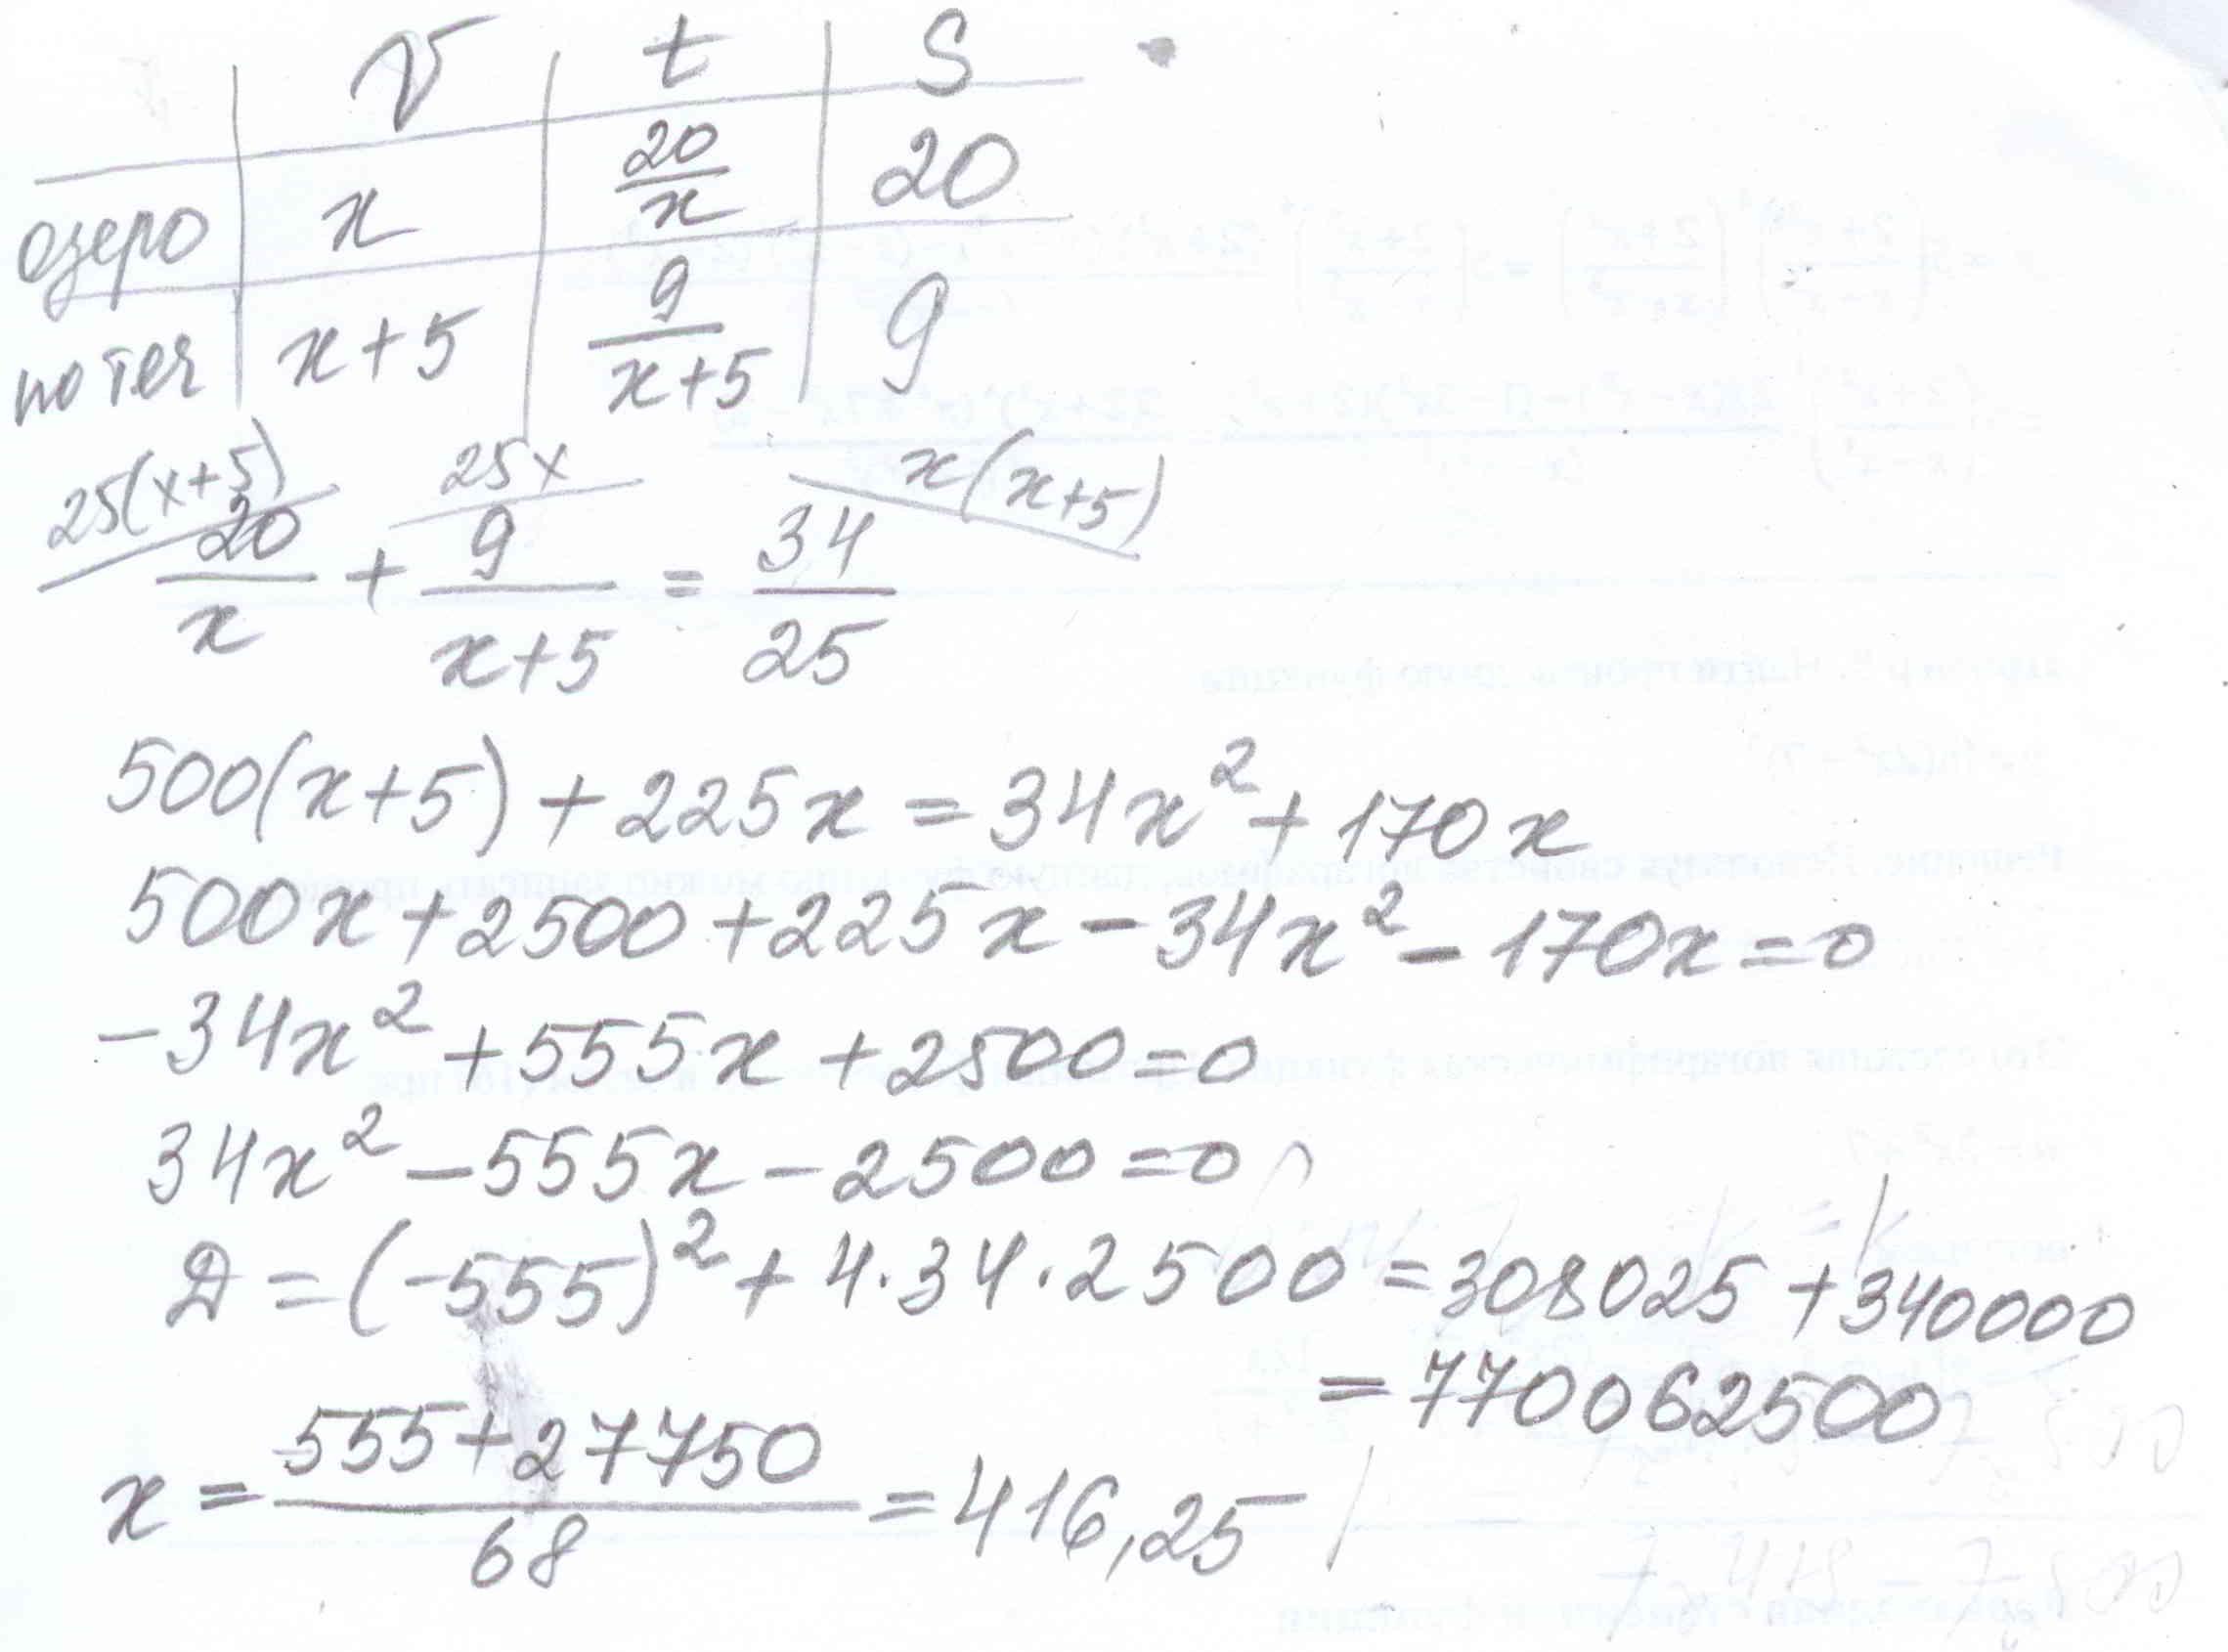 V t S
озеро x 20/x 20
по теч x+5 9/(x+5) 9
25(x+5) 25x x(x+5)
20/x + 9/(x+5) = 34/25
500(x+5) + 225x = 34x² + 170x
500x + 2500 + 225x - 34x² - 170x = 0
-34x² + 555x + 2500 = 0
34x² - 555x - 2500 = 0
D = (-555)² + 4·34·2500 = 308025 + 340000
= 770062500
x = (555 + 27750)/68 = 416,25